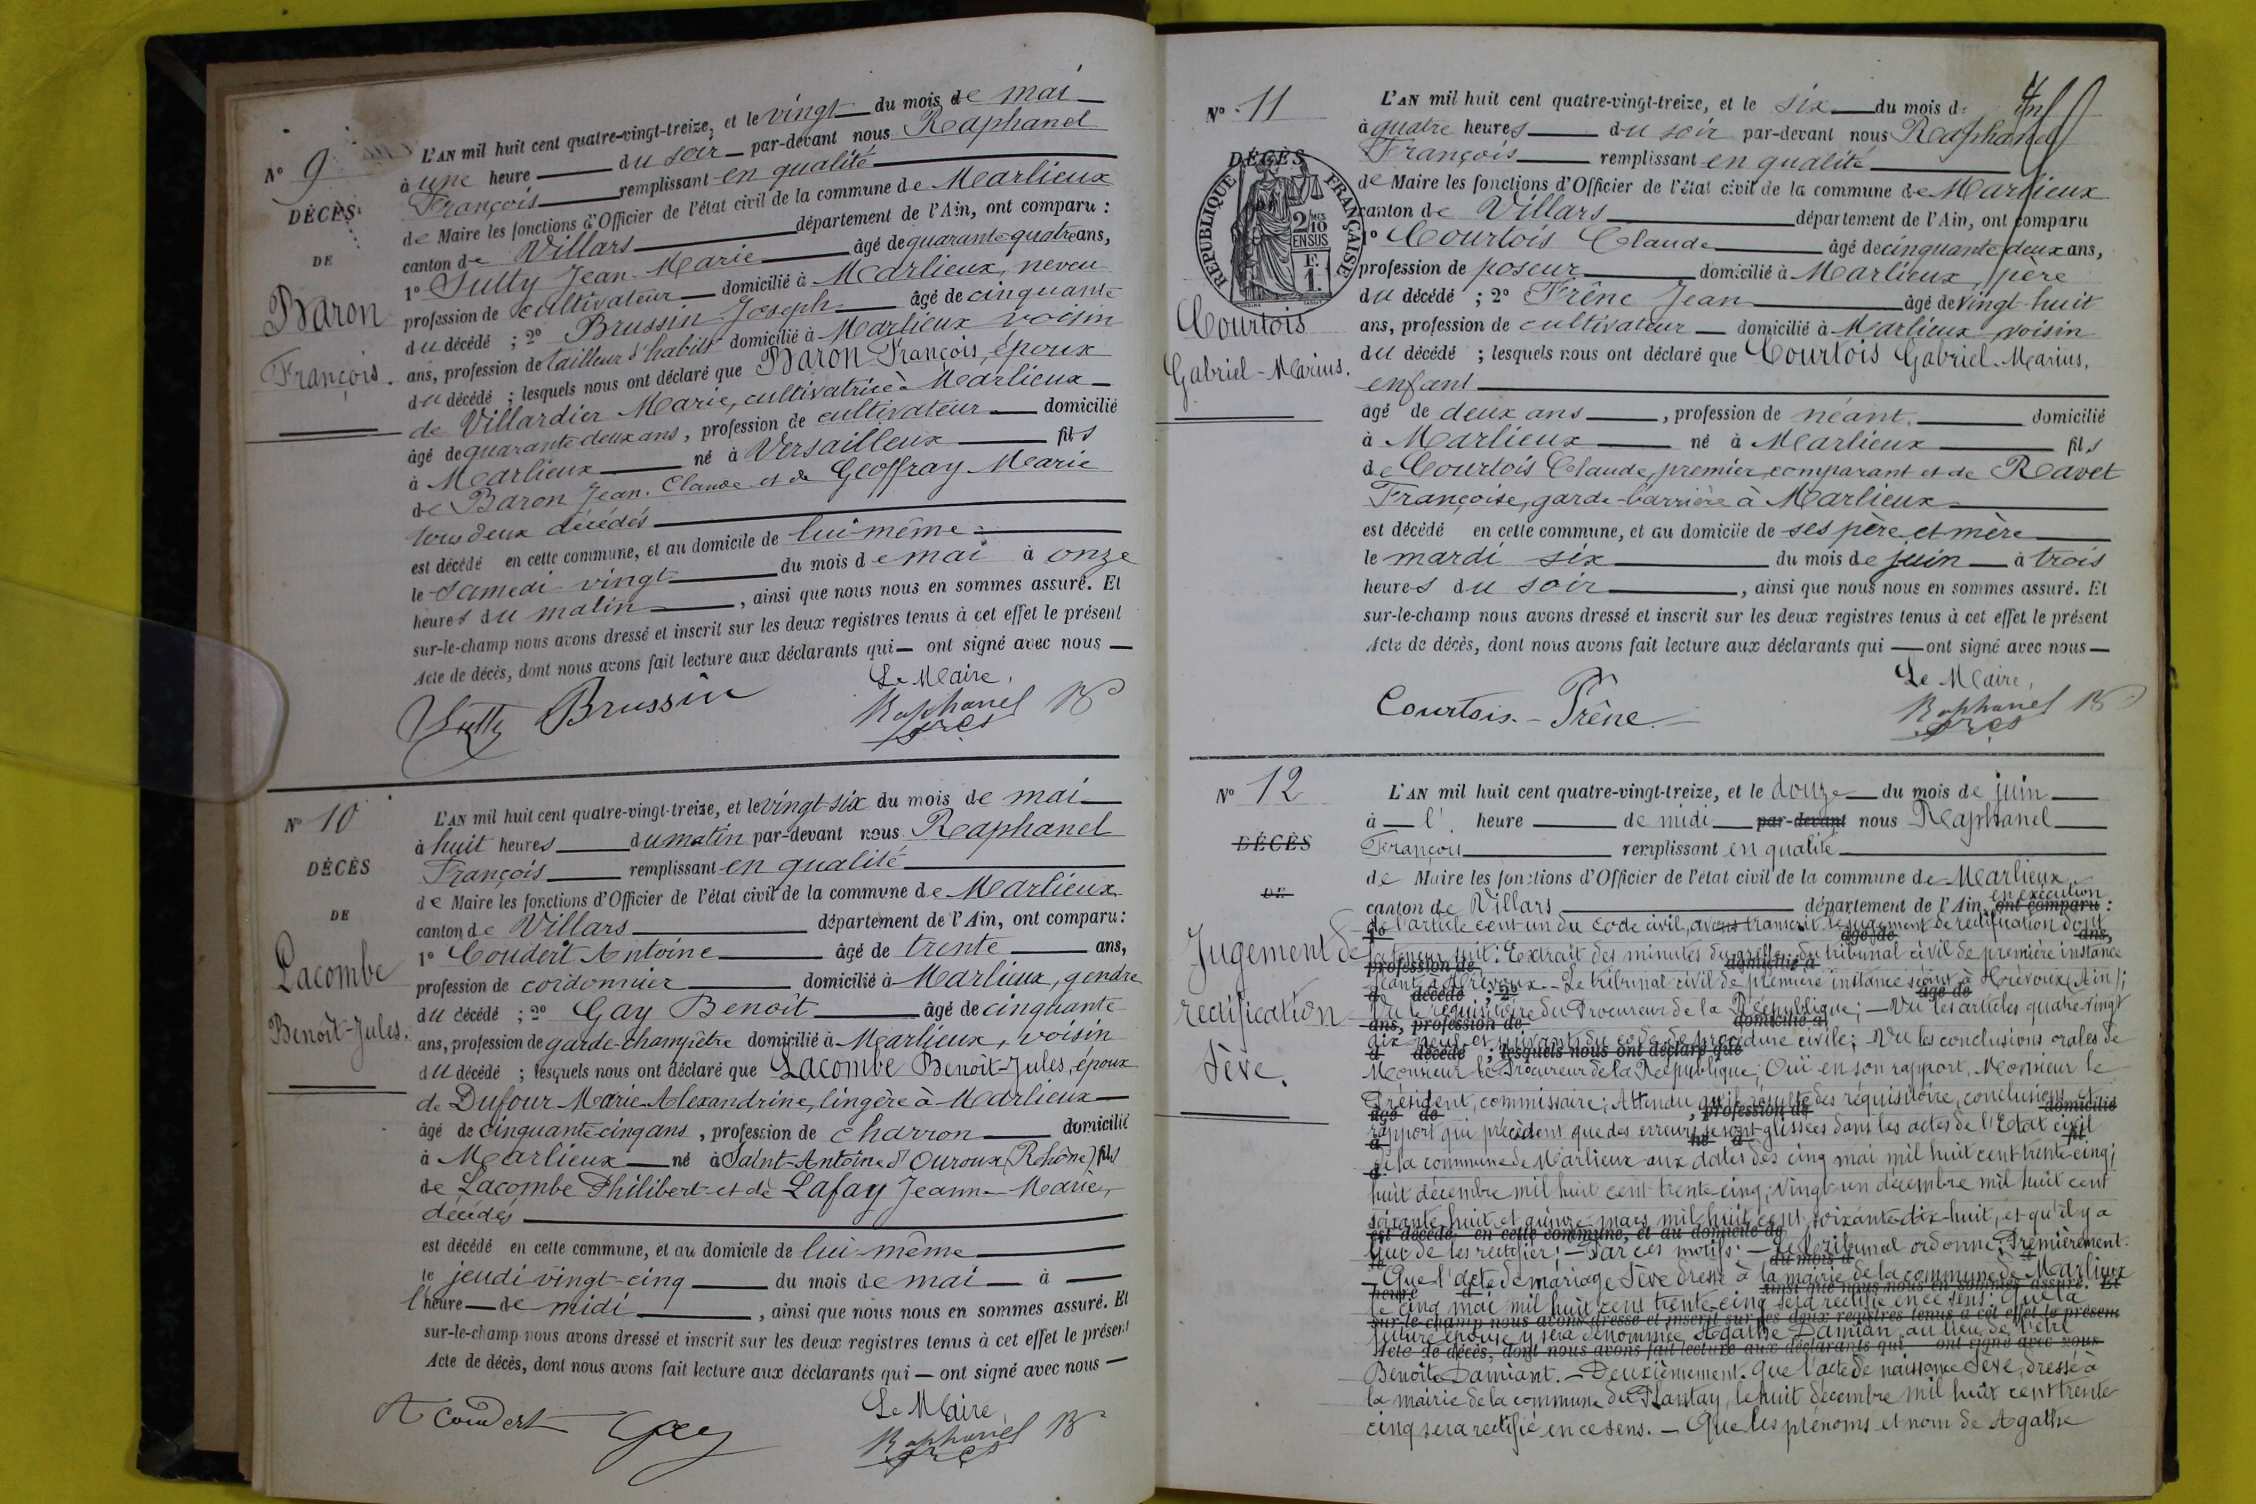 N° 9
DÉCÈS
DE
Baron
François.
L'AN mil huit cent quatre-vingt-treize, et le vingt du mois de mai
à une heure du soir par-devant nous Raphanel
François remplissant en qualité
de Maire les fonctions d'Officier de l'état civil de la commune de Marlieux
canton de Villars département de l'Ain, ont comparu :
1° Sutty Jean-Marie âgé de quarante-quatre ans,
profession de cultivateur domicilié à Marlieux, neveu
du décédé ; 2° Brussin Joseph âgé de cinquante
ans, profession de tailleur d'habits domicilié à Marlieux voisin
du décédé ; lesquels nous ont déclaré que Baron François, époux
de Villardier Marie, cultivatrice à Marlieux
âgé de quarante deux ans, profession de cultivateur domicilié
à Marlieux né à Versailleux fils
de Baron Jean-Claude et de Geoffray Marie
tous deux décédés
est décédé en cette commune, et au domicile de lui-même
le samedi vingt du mois de mai à onze
heures du matin, ainsi que nous nous en sommes assuré. Et
sur-le-champ nous avons dressé et inscrit sur les deux registres tenus à cet effet le présent
Acte de décès, dont nous avons fait lecture aux déclarants qui ont signé avec nous
Le Maire,
Sutty Brussin Raphanel
N° 10
DÉCÈS
DE
Lacombe
Benoît-Jules.
L'AN mil huit cent quatre-vingt-treize, et le vingt-six du mois de mai
à huit heures du matin par-devant nous Raphanel
François remplissant en qualité
de Maire les fonctions d'Officier de l'état civil de la commune de Marlieux
canton de Villars département de l'Ain, ont comparu :
1° Coudert Antoine âgé de trente ans,
profession de cordonnier domicilié à Marlieux, gendre
du décédé ; 2° Gay Benoît âgé de cinquante
ans, profession de garde-champêtre domicilié à Marlieux, voisin
du décédé ; lesquels nous ont déclaré que Lacombe Benoît-Jules, époux
de Dufour Marie-Alexandrine, lingère à Marlieux
âgé de cinquante-cinq ans, profession de charron domicilié
à Marlieux né à Saint-Antoine d'Ouroux (Rhône) fils
de Lacombe Philibert et de Lafay Jeanne-Marie,
décédés
est décédé en cette commune, et au domicile de lui-même
le jeudi vingt-cinq du mois de mai à
l'heure de midi, ainsi que nous nous en sommes assuré. Et
sur-le-champ nous avons dressé et inscrit sur les deux registres tenus à cet effet le présent
Acte de décès, dont nous avons fait lecture aux déclarants qui ont signé avec nous
Le Maire,
A Coudert Gay Raphanel
N° 11
DÉCÈS
RÉPUBLIQUE FRANÇAISE
2/10 EN SUS
F.
1.
Courtois
Gabriel-Marius.
L'AN mil huit cent quatre-vingt-treize, et le six du mois d
à quatre heures du soir par-devant nous Raphanel
François remplissant en qualité
de Maire les fonctions d'Officier de l'état civil de la commune de Marlieux
canton de Villars département de l'Ain, ont comparu
1° Courtois Claude âgé de cinquante deux ans,
profession de poseur domicilié à Marlieux, père
du décédé ; 2° Frêne Jean âgé de vingt-huit
ans, profession de cultivateur domicilié à Marlieux voisin
du décédé ; lesquels nous ont déclaré que Courtois Gabriel-Marius,
enfant
âgé de deux ans, profession de néant. domicilié
à Marlieux né à Marlieux fils
de Courtois Claude, premier comparant et de Ravet
Françoise, garde-barrière à Marlieux
est décédé en cette commune, et au domicile de ses père et mère
le mardi six du mois de juin à trois
heures du soir, ainsi que nous nous en sommes assuré. Et
sur-le-champ nous avons dressé et inscrit sur les deux registres tenus à cet effet le présent
Acte de décès, dont nous avons fait lecture aux déclarants qui ont signé avec nous
Le Maire,
Courtois. Frêne Raphanel
N° 12
DÉCÈS
DE
Jugement de
rectification
Sève.
L'AN mil huit cent quatre-vingt-treize, et le douze du mois de juin
à l'heure de midi par-devant nous Raphanel
François remplissant en qualité
de Maire les fonctions d'Officier de l'état civil de la commune de Marlieux
canton de Villars département de l'Ain, ont comparu : en exécution
de l'article cent un du Code civil, avons transcrit le jugement de rectification dont
la teneur suit : Extrait des minutes du greffe du tribunal civil de première instance
séant à Trévoux. - Le tribunal civil de première instance séant à Trévoux (Ain);
Vu le réquisitoire du Procureur de la République; - Vu les articles quatre-vingt
dix-neuf et suivants du code de procédure civile; Vu les conclusions orales de
Monsieur le Procureur de la République; Ouï en son rapport, Monsieur le
Président, commissaire; Attendu qu'il résulte des réquisitoire, conclusions et
rapport qui précèdent que des erreurs se sont glissées dans les actes de l'Etat civil
de la commune de Marlieux aux dates des cinq mai mil huit cent trente-cinq;
huit décembre mil huit cent trente-cinq; vingt-un décembre mil huit cent
soixante-huit et quinze mars mil huit cent soixante-dix-huit, et qu'il y a
lieu de les rectifier; - Par ces motifs: - Le tribunal ordonne: Premièrement.
- Que l'acte de mariage Sève dressé à la mairie de la commune de Marlieux
le cinq mai mil huit cent trente-cinq sera rectifié en ce sens: Que la
future épouse y sera dénommée Agathe Damian au lieu de l'être
Benoîte Damiant. - Deuxièmement. Que l'acte de naissance Sève, dressé à
la mairie de la commune du Plantay, le huit décembre mil huit cent trente
cinq sera rectifié en ce sens. - Que les prénoms et nom de Agathe